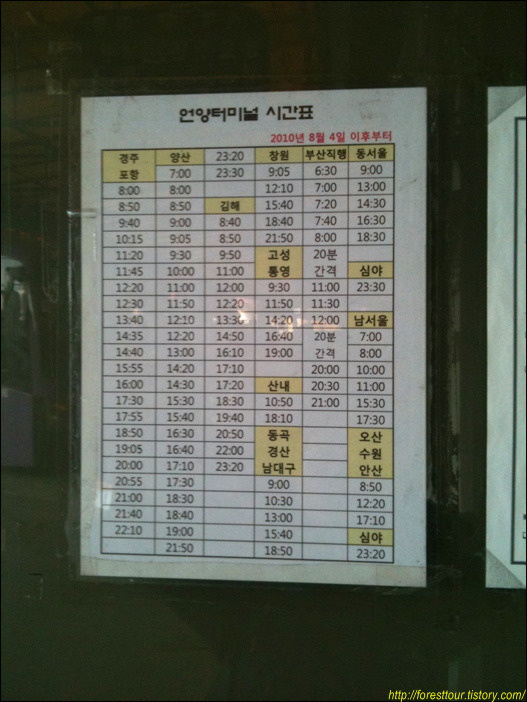 언양터미널 시간표
2010년 8월 4일 이후부터
경주 양산 23:20 창원 부산직행 동서울
포항 7:00 23:30 9:05 6:30 9:00
8:00 8:00 12:10 7:00 13:00
8:50 8:50 김해 15:40 7:20 14:30
9:40 9:00 8:40 18:40 7:40 16:30
10:15 9:05 8:50 21:50 8:00 18:30
11:20 9:30 9:50 고성 20분
11:45 10:00 11:00 통영 간격 심야
12:20 11:00 12:00 9:30 11:00 23:30
12:30 11:50 12:20 11:50 11:30
13:40 12:10 13:30 14:20 12:00 남서울
14:35 12:20 14:50 16:40 20분 7:00
14:40 13:00 16:10 19:00 간격 8:00
15:55 14:20 17:10 20:00 10:00
16:00 14:30 17:20 산내 20:30 11:00
17:30 15:30 18:30 10:50 21:00 15:30
17:55 15:40 19:40 18:10 17:30
18:50 16:30 20:50 동곡 오산
19:05 16:40 22:00 경산 수원
20:00 17:10 23:20 남대구 안산
20:55 17:30 9:00 8:50
21:00 18:30 10:30 12:20
21:40 18:40 13:00 17:10
22:10 19:00 15:40 심야
21:50 18:50 23:20
http://foresttour.tistory.com/